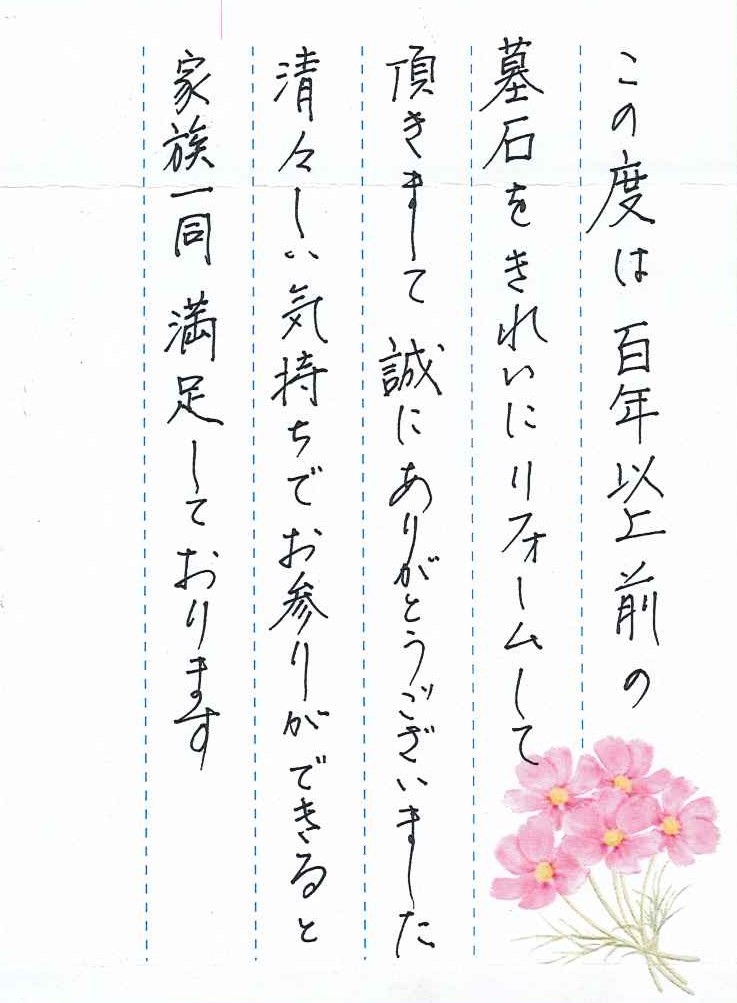 この度は百年以上前の
墓石をきれいにリフォームして
頂きまして誠にありがとうございました
清々しい気持ちでお参りができると
家族一同満足しております